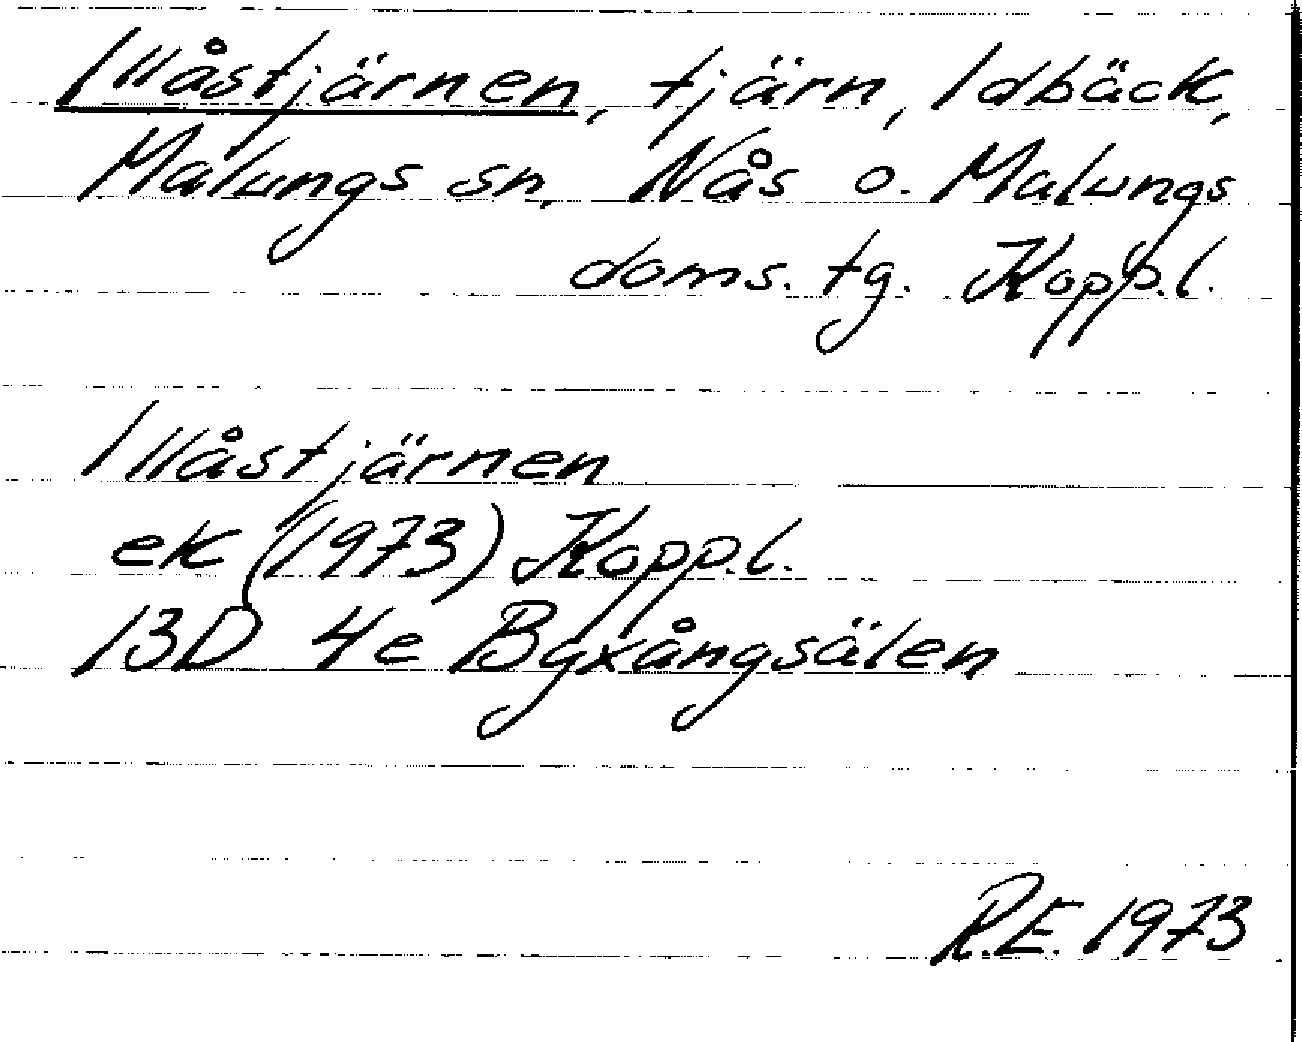 Illåstjärnen, tjärn, Idbäck,
Malungs sn, Nås o. Malungs
doms. tg. Kopp.l.
Illåstjärnen
ek (1973) Kopp.l.
13D 4e Byxångsälen
R.E. 1973